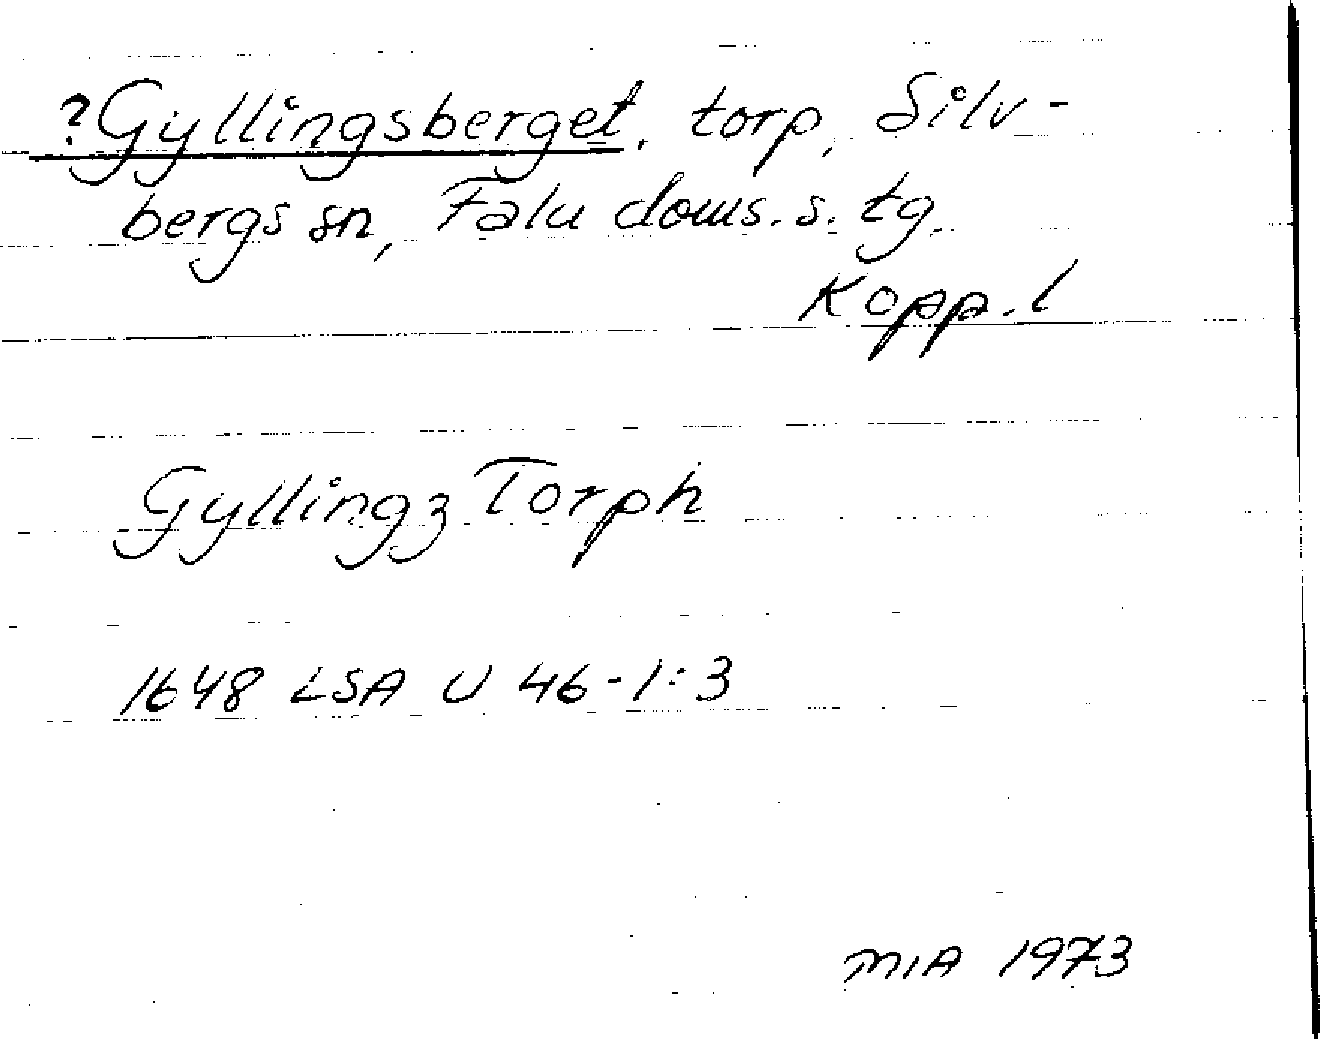 ?Gyllingsberget, torp, Silv-
bergs sn, Falu doms. s. tg.
Kopp. l
Gyllingz Torph
1648 LSA U 46-1:3
MIA 1973